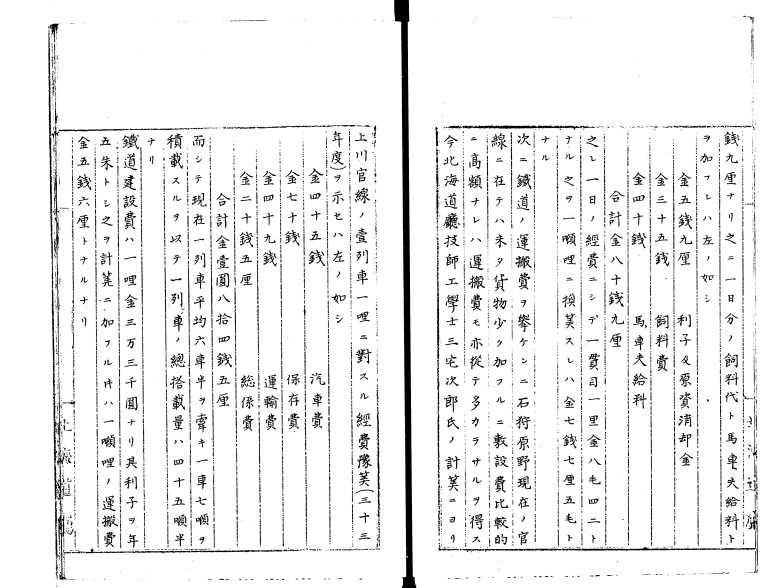 錢九厘ナリ之ニ一日分ノ飼料代ト馬車夫給料ト
ヲ加フレハ左ノ如シ
金五錢九厘 利子及原資消却金
金三十五錢 飼料費
金四十錢 馬車夫給料
合計金八十錢九厘
之レ一日ノ經費ニシテ一貫目一里金八毛四ニト
ナル之ヲ一噸哩ニ換算スレハ金七錢七厘五毛ト
ナル
次ニ鐵道ノ運搬費ヲ擧ケンニ石狩原野現在ノ官
線ニ在テハ未タ貨物少ク加フルニ敷設費比較的
ニ高額ナレハ運搬費モ亦從テ多カラサルヲ得ス
今北海道廳技師工學士三宅次郎氏ノ計算ニヨリ
上川官線ノ壹列車一哩ニ對スル經費豫算(三十三
年度)ヲ示セハ左ノ如シ
金四十五錢 汽車費
金七十錢 保存費
金四十九錢 運輸費
金二十錢五厘 総係費
合計金壹圓八拾四錢五厘
而シテ現在一列車平均六車半ヲ牽キ一車七噸ヲ
積載スルヲ以テ一列車ノ總搭載量ハ四十五噸半
ナリ
鐵道建設費ハ一哩金三万三千圓ナリ其利子ヲ年
五朱トシ之ヲ計算ニ加フル片ハ一噸哩ノ運搬費
金五錢六厘トナルナリ